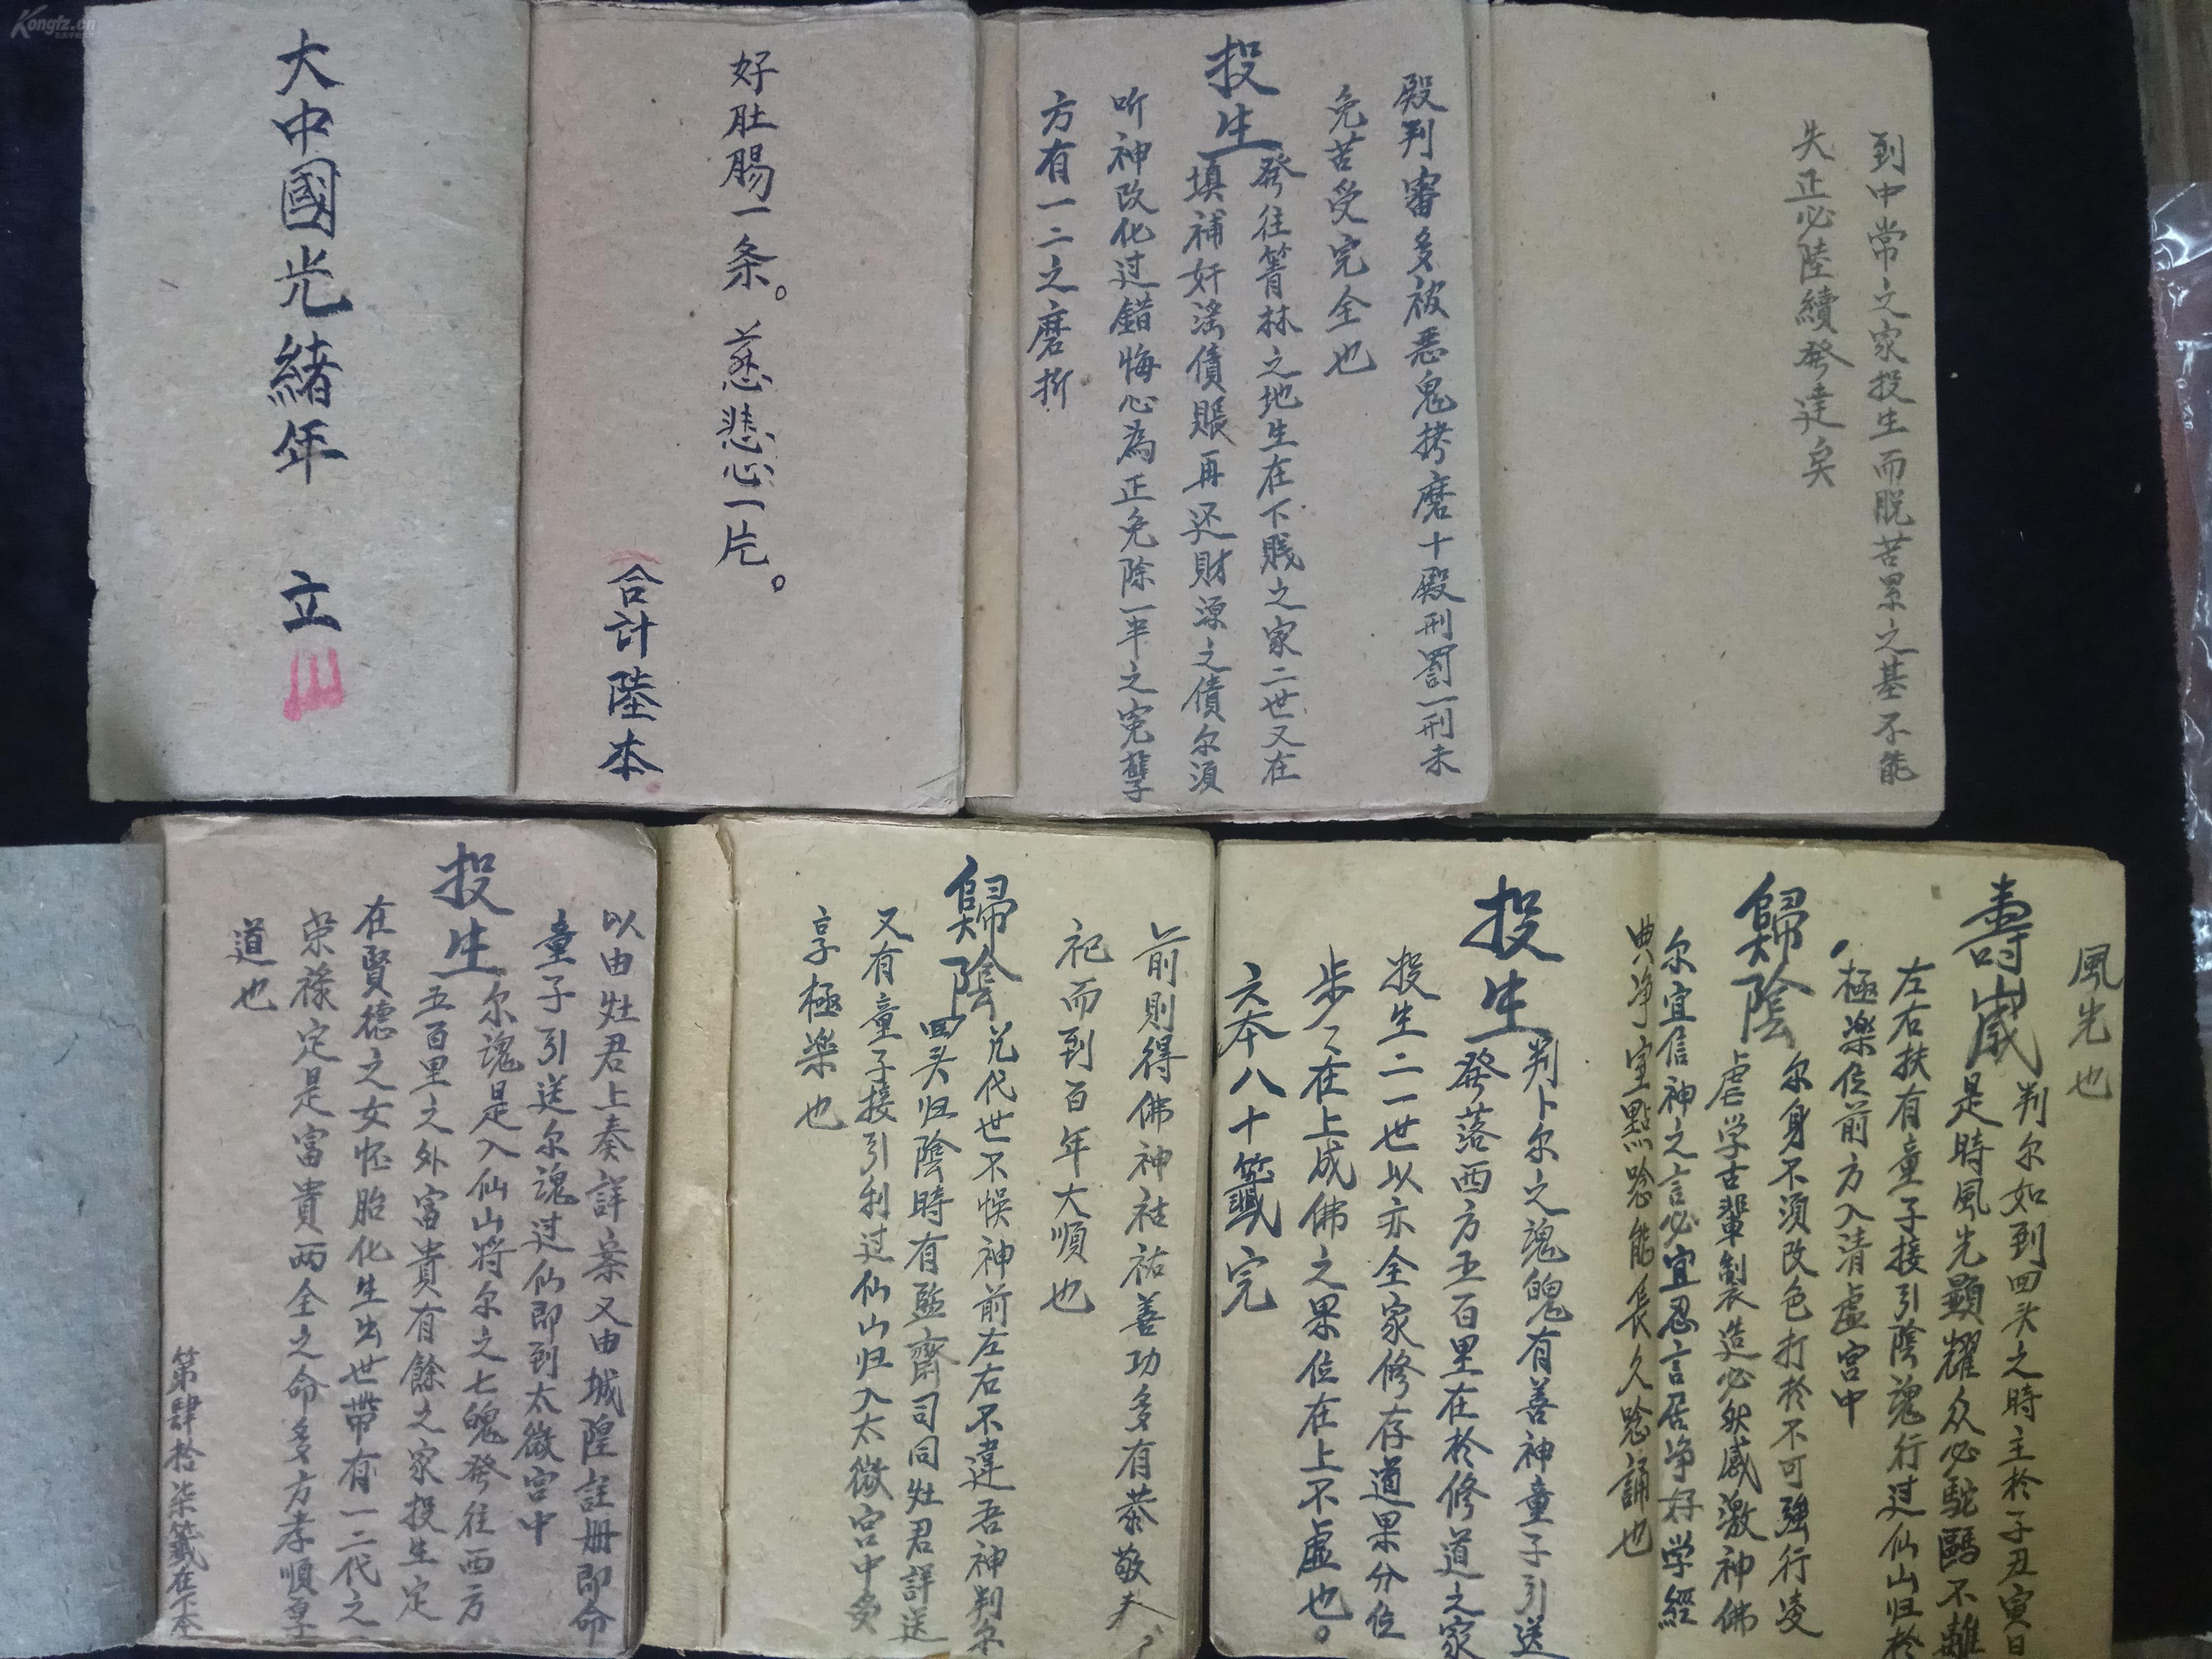 Kongfz.cn
大中國光緒年 立
好肚腸一条。慈悲心一片。
合計陸本
殿判審多被悪鬼拷磨十殿刑罰一刑未
免苦受完全也
投生
發往箐林之地生在下贱之家二世又在
填補奸滛債賬再还財源之債尔須
听神改化过錯悔心為正免除一半之寃孽
方有一二之磨折
到中常之家投生而脱苦累之基不能
失正必陸續發達矣
以由灶君上奏詳案又由城隍註册即命
童子引送尔魂过仙即到太微宫中
投生
尔魂是入仙山将尔之七魄發往西方
五百里之外富貴有餘之家投生定
在賢德之女怀胎化生出世带有一二代之
荣禄定是富貴两全之命多方孝順享
道也
第肆拾柒籖在下本
前則得佛神祜祐善功多有恭敬夫
祀而到百年大順也
歸陰
兑代世不悞神前左右不違吾神判尔
回头归陰時有監齋司同灶君詳送
又有童子接引利过仙山归入太微宫中受
享極楽也
風光也
壽歲
判尔如到回头之時主於子丑寅日
是時風光顯耀众必駝 不離
左右扶有童子接引陰魂行过仙山归於
極楽位前方入清虚宫中
歸陰
尔身不須改色打於不可強行凌
虐学古輩製造必然感激神佛
尔宜信神之言必宜忍言居净好学經
典净室點唸能長久唸誦也
投生
判卜尔之魂魄有善神童子引送
發落西方五百里在於修道之家
投生二一世以亦全家修存道果分位
步々在上成佛之果位在上不虚也。
六本八十籖完